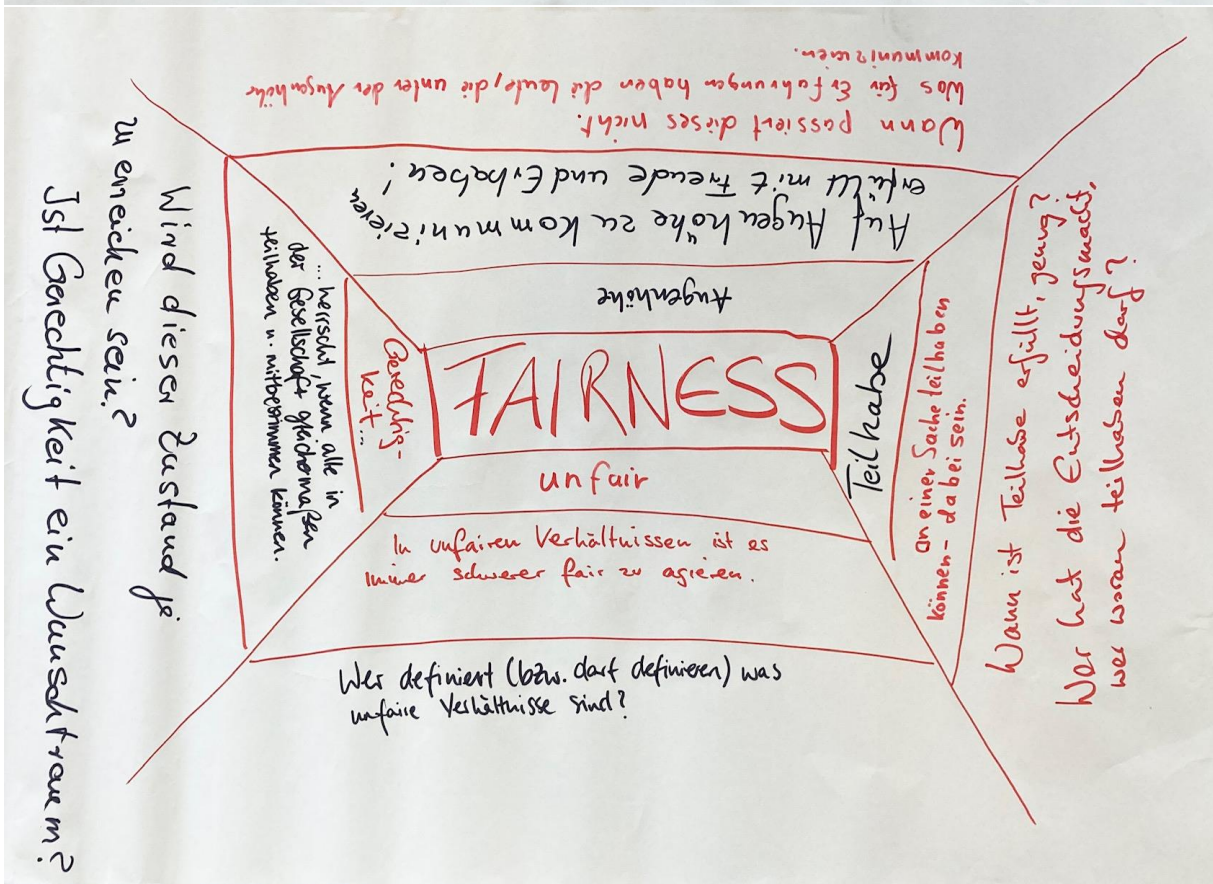 FAIRNESS
Augenhöhe
Auf Augenhöhe zu kommunizieren
erfüllt mit Freude und Erhaben!
Wann passiert dieses nicht.
Was für Erfahrungen haben die Leute, die unter der Augenhöhe
kommunizieren.
Teilhabe
an einer Sache teilhaben
können - dabei sein.
Wann ist Teilhabe erfüllt, genug?
Wer hat die Entscheidungsmacht,
wer woran teilhaben darf?
unfair
In unfairen Verhältnissen ist es
immer schwerer fair zu agieren.
Wer definiert (bzw. darf definieren) was
unfaire Verhältnisse sind?
Gerechtig-
keit...
... herrscht, wenn alle in
der Gesellschaft gleichermaßen
teilhaben u. mitbestimmen können.
Wird dieser Zustand je
zu erreichen sein?
Ist Gerechtigkeit ein Wunschtraum?